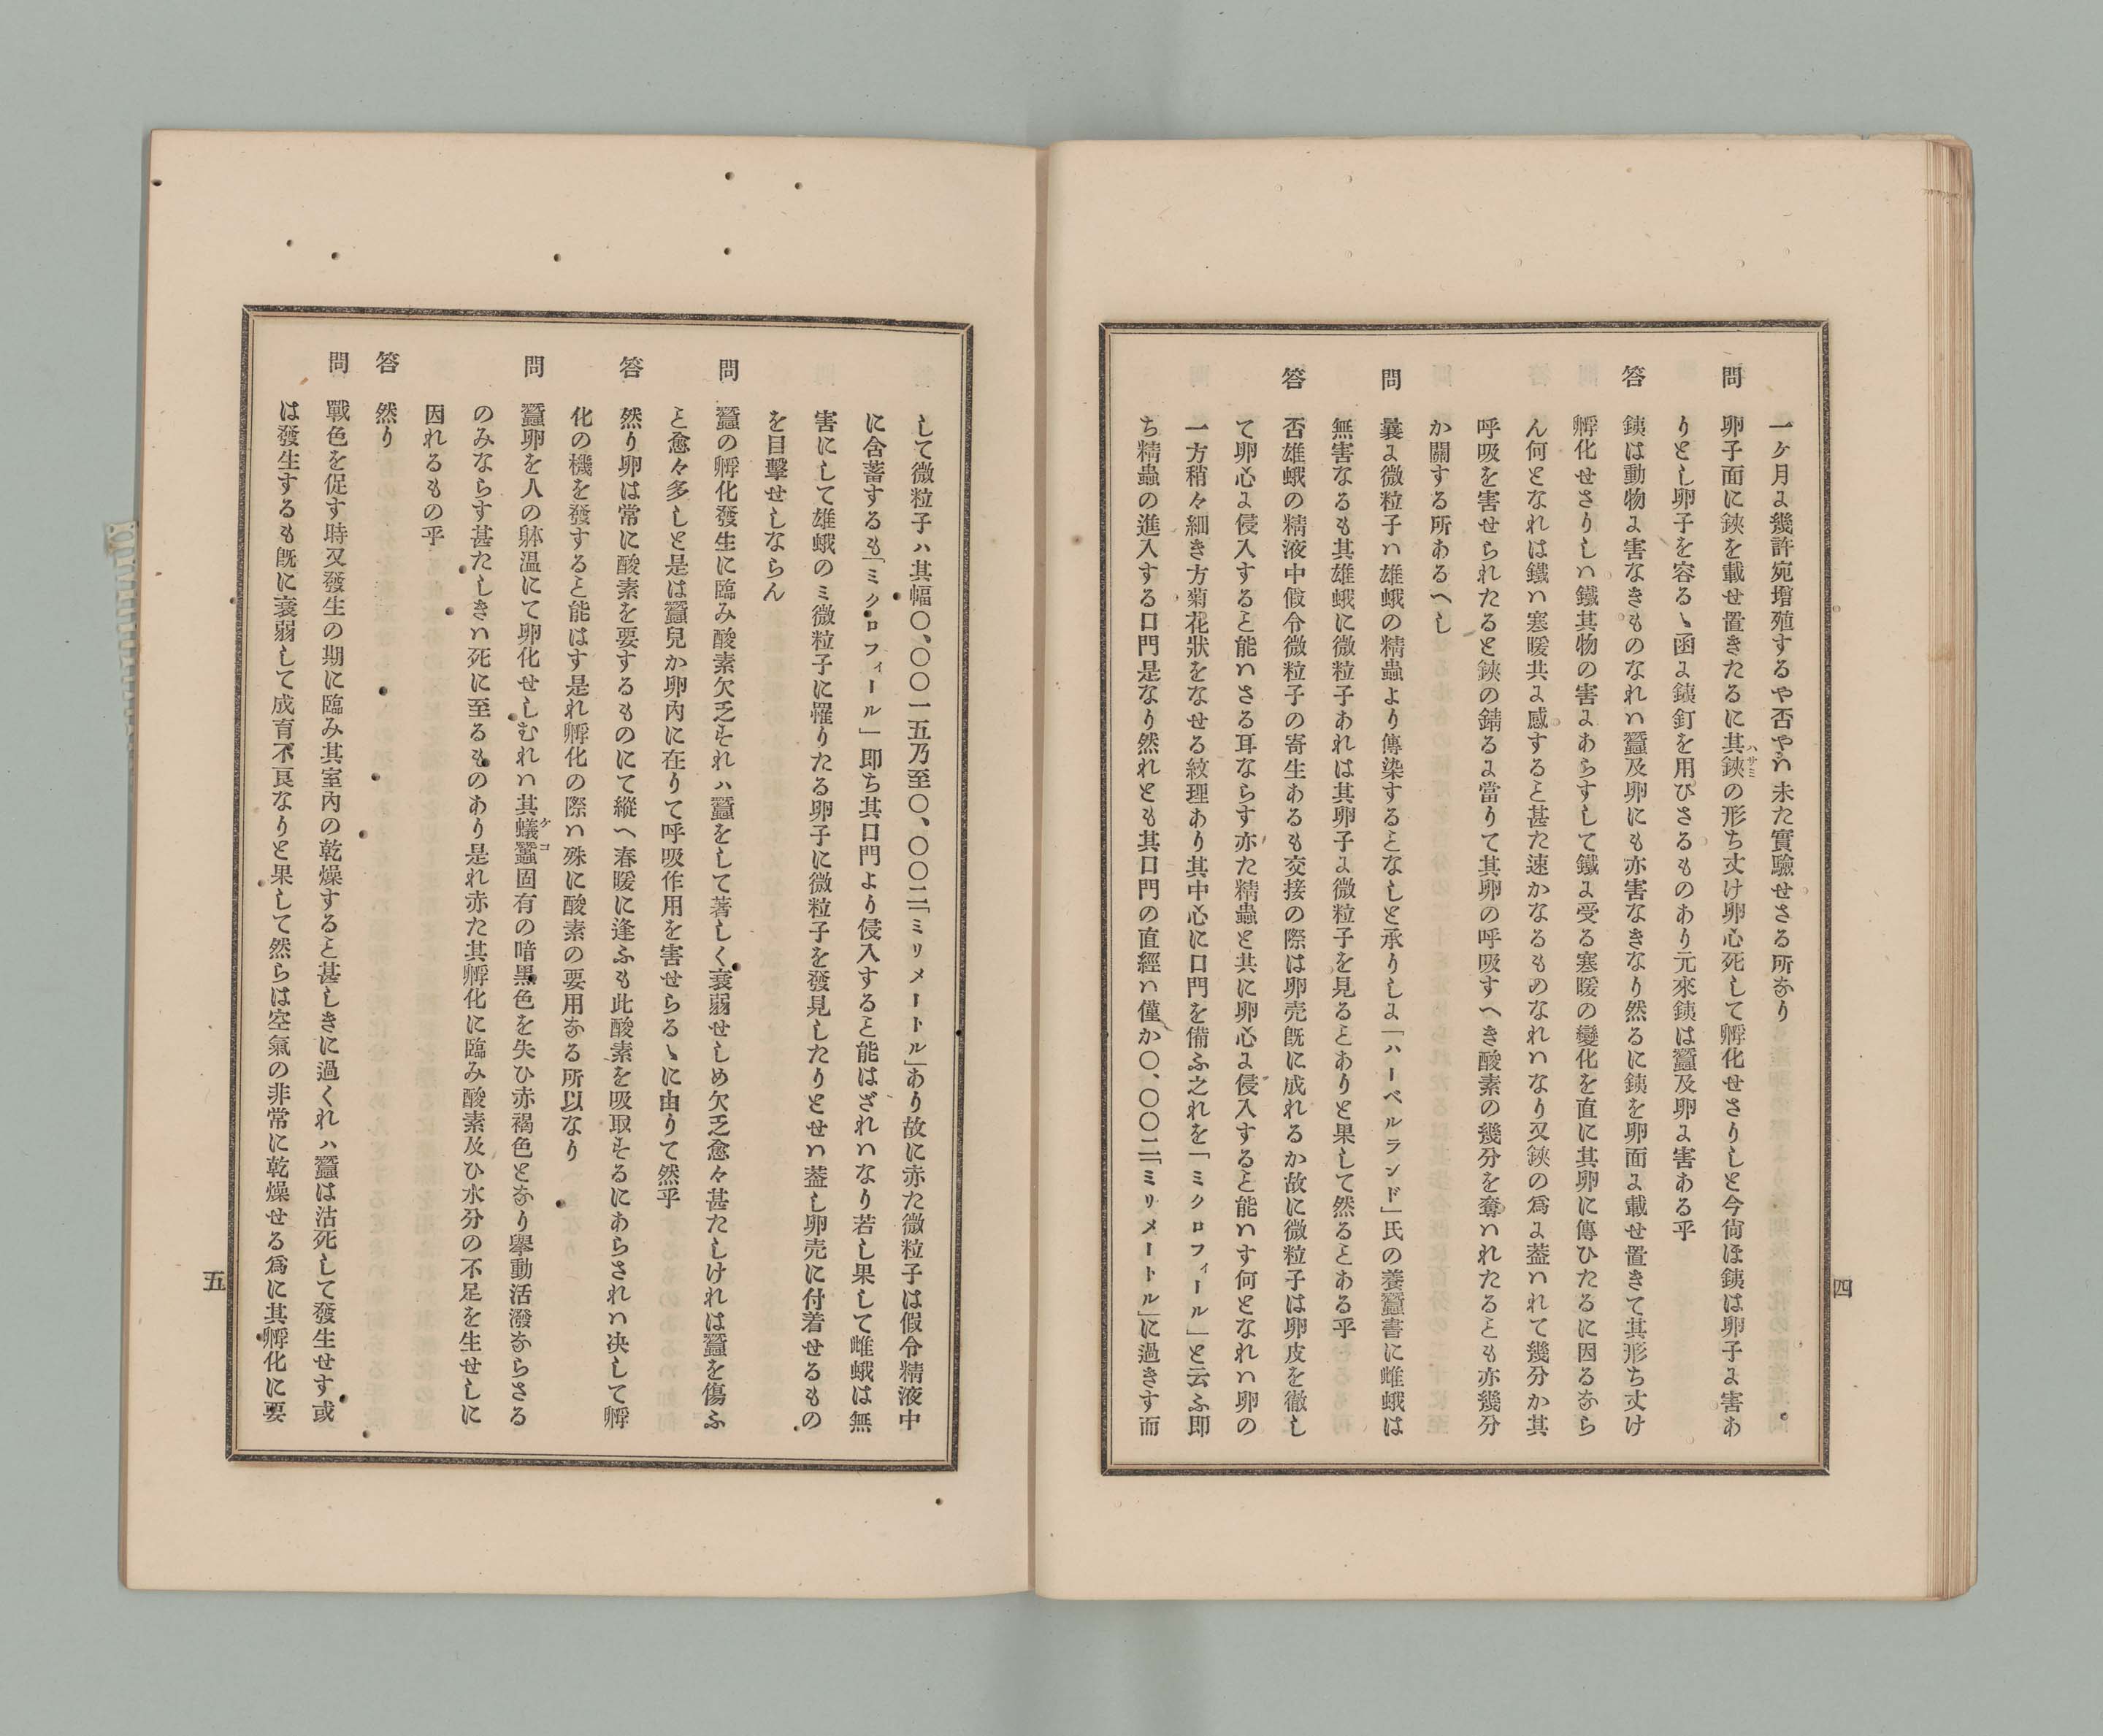 一ケ月に幾許宛增殖するや否やハ未た實驗せさる所なり
問 卵子面に鋏を載せ置きたるに其鋏の形ち丈け卵心死して孵化せさりしと今尙ほ銕は卵子に害あ
ハサミ
りとし卵子を容るゝ函に銕釘を用ひさるものあり元來銕は蠶及卵に害ある乎
答 銕は動物に害なきものなれハ蠶及卵にも亦害なきなり然るに銕を卵面に載せ置きて其形ち丈け
孵化せさりしハ鐵其物の害にあらすして鐵に受る寒暖の變化を直に其卵に傳ひたるに因るなら
ん何となれは鐵ハ寒暖共に感すると甚た速かなるものなれハなり又鋏の爲に葢ハれて幾分か其
呼吸を害せられたると鋏の錆るに當りて其卵の呼吸すへき酸素の幾分を奪ハれたるとも亦幾分
か關する所あるへし
問 曩に微粒子ハ雄蛾の精蟲より傳染するとなしと承りしに「ハーベルランド」氏の養蠶書に雌蛾は
無害なるも其雄蛾に微粒子あれは其卵子に微粒子を見るとありと果して然るとある乎
答 否雄蛾の精液中假令微粒子の寄生あるも交接の際は卵売既に成れるか故に微粒子は卵皮を徹し
て卵心に侵入すると能ハさる耳ならす亦た精蟲と共に卵心に侵入すると能ハす何となれハ卵の
一方稍々細き方菊花狀をなせる紋理あり其中心に口門を備ふ之れを「ミクロフィール」と云ふ即
ち精蟲の進入する口門是なり然れとも其口門の直經ハ僅か〇、〇〇二「ミリメートル」に過きす而
四
して微粒子ハ其幅〇、〇〇一五乃至〇、〇〇二「ミリメートル」あり故に亦た微粒子は假令精液中
に含蓄するも「ミクロフィール」即ち其口門より侵入すると能はざれハなり若し果して雌蛾は無
害にして雄蛾のミ微粒子に罹りたる卵子に微粒子を發見したりとせハ葢し卵売に付着せるもの
を目擊せしならん
問 蠶の孵化發生に臨み酸素欠乏それハ蠶をして著しく衰弱せしめ欠乏愈々甚たしけれは蠶を傷ふ
と愈々多しと是は蠶兒か卵內に在りて呼吸作用を害せらるゝに由りて然乎
答 然り卵は常に酸素を要するものにて縱へ春暖に逢ふも此酸素を吸取そるにあらされハ决して孵
化の機を發すると能はす是れ孵化の際ハ殊に酸素の要用なる所以なり
問 蠶卵を人の躰温にて卵化せしむれハ其蟻蠶固有の暗黑色を失ひ赤褐色となり擧動活潑ならさる
ケコ
のみならす甚たしきハ死に至るものあり是れ亦た其孵化に臨み酸素及ひ水分の不足を生せしに
因れるもの乎
答 然り
問 戰色を促す時又發生の期に臨み其室內の乾燥すると甚しきに過くれハ蠶は沽死して發生せす或
は發生するも既に衰弱して成育不良なりと果して然らは空氣の非常に乾燥せる爲に其孵化に要
五